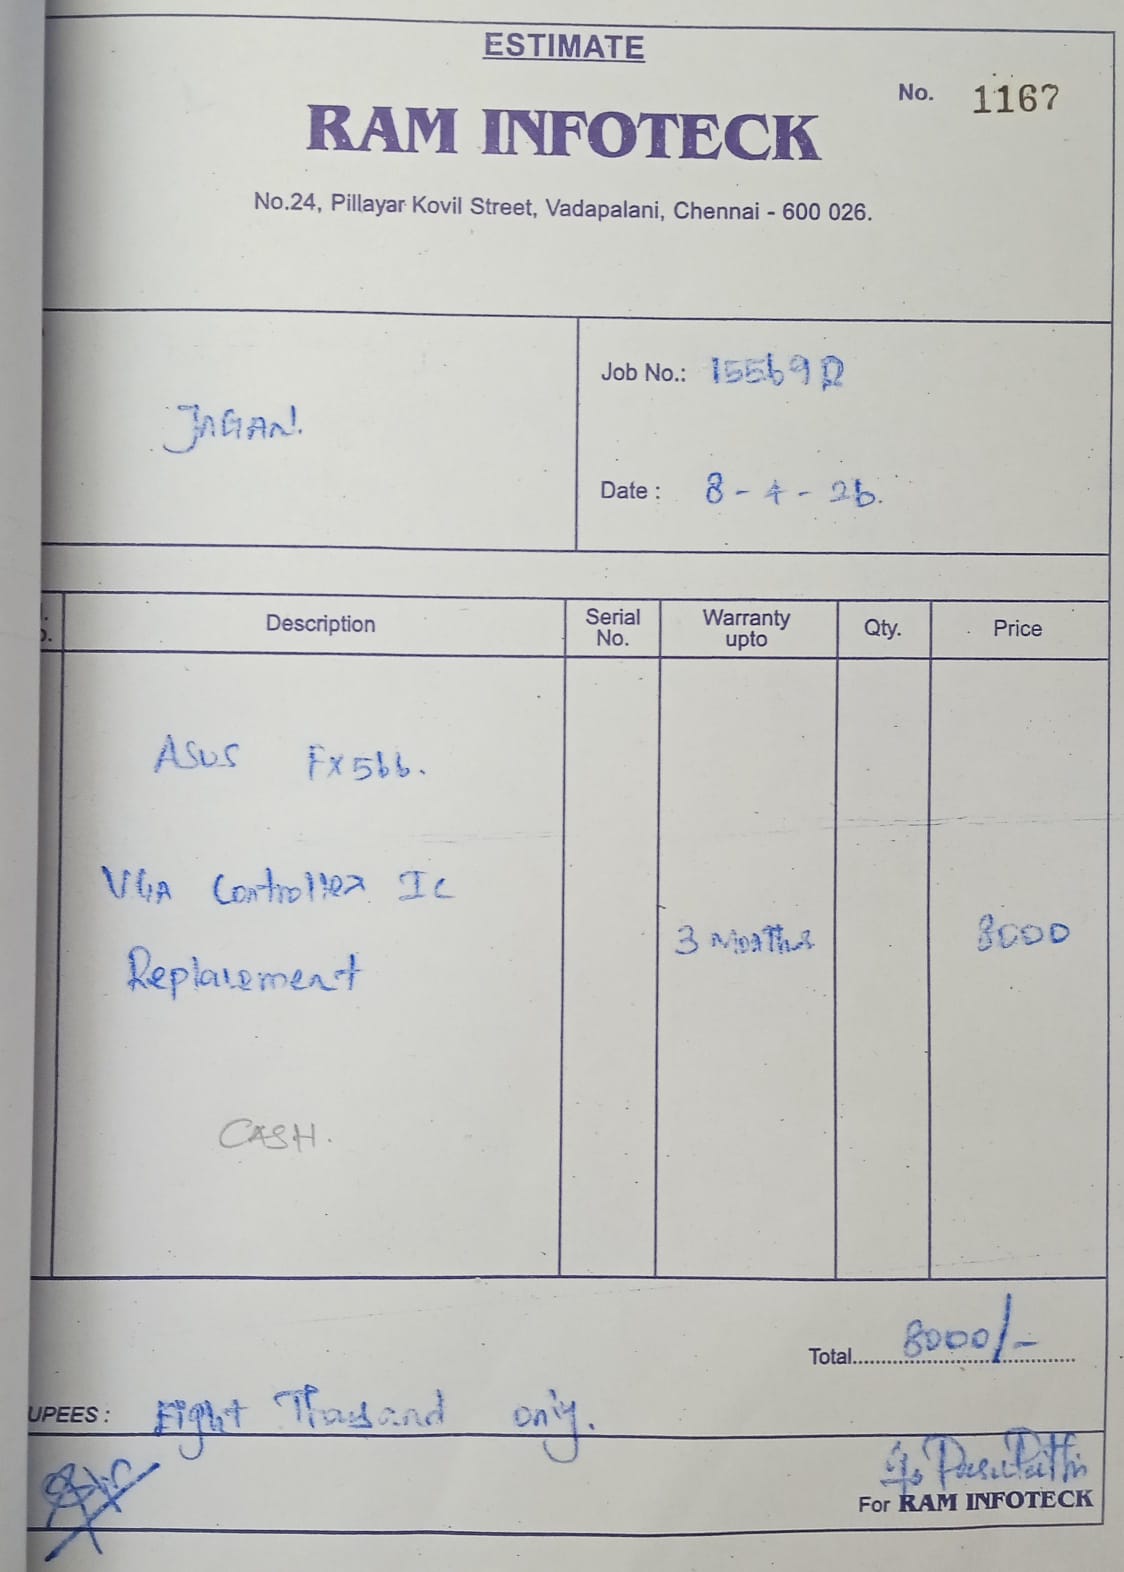 ESTIMATE
No. 1167
RAM INFOTECK
No.24, Pillayar Kovil Street, Vadapalani, Chennai - 600 026.
JAGAN.
Job No.: 15569R
Date : 8 - 4 - 26.
Description Serial No. Warranty upto Qty. Price
ASUS FX566.
VGA Controller IC
Replacement
3 Months 8000
CASH.
Total 8000/-
UPEES : Eight Thousand only.
For RAM INFOTECK